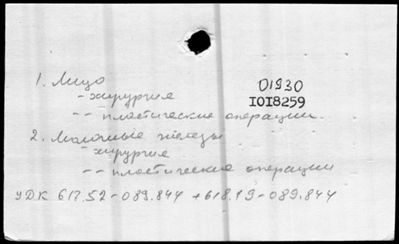 1. Лицо
01930
- хирургия
I0I8259
-- пластические операции
2. Молочные железы
- хирургия
-- пластические операции
УДК 617.52-089.844 + 618.19-089.844